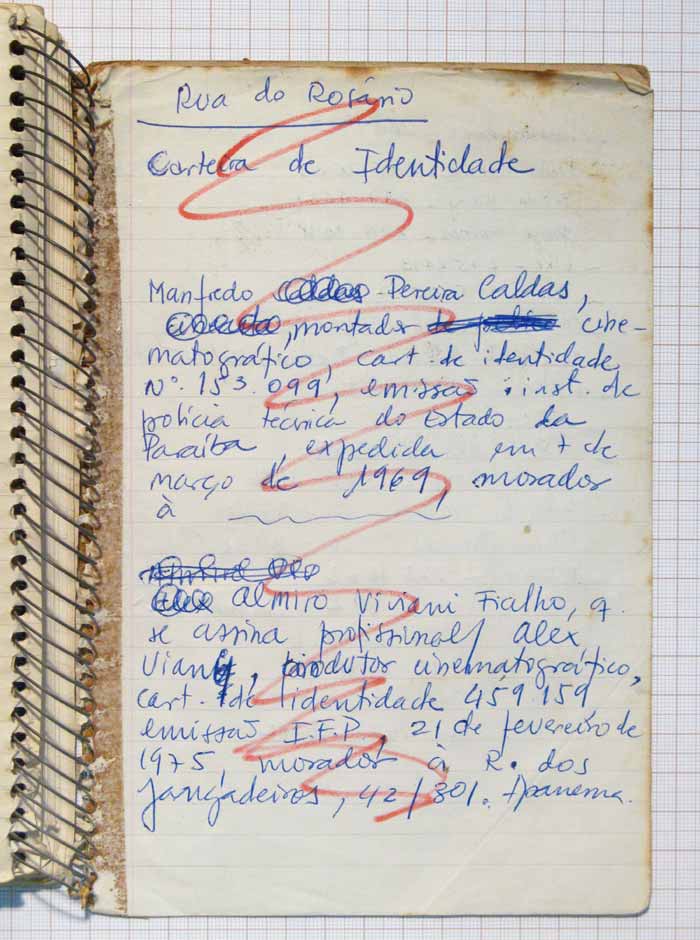 Rua do Rosário
Carteira de Identidade
Manfredo Pereira Caldas,
, montador cine-
matográfico, cart. de identidade
Nº. 153.099, emissão inst. de
polícia técnica do Estado da
Paraíba, expedida em 7 de
março de 1969, morador
à
Almiro Viviani Fialho, q.
se assina profissional/ Alex
Viany, produtor cinematográfico,
cart. de identidade 459.159,
emissão I.F.P., 21 de fevereiro de
1975, morador à R. dos
Jangadeiros, 42/301. Ipanema.